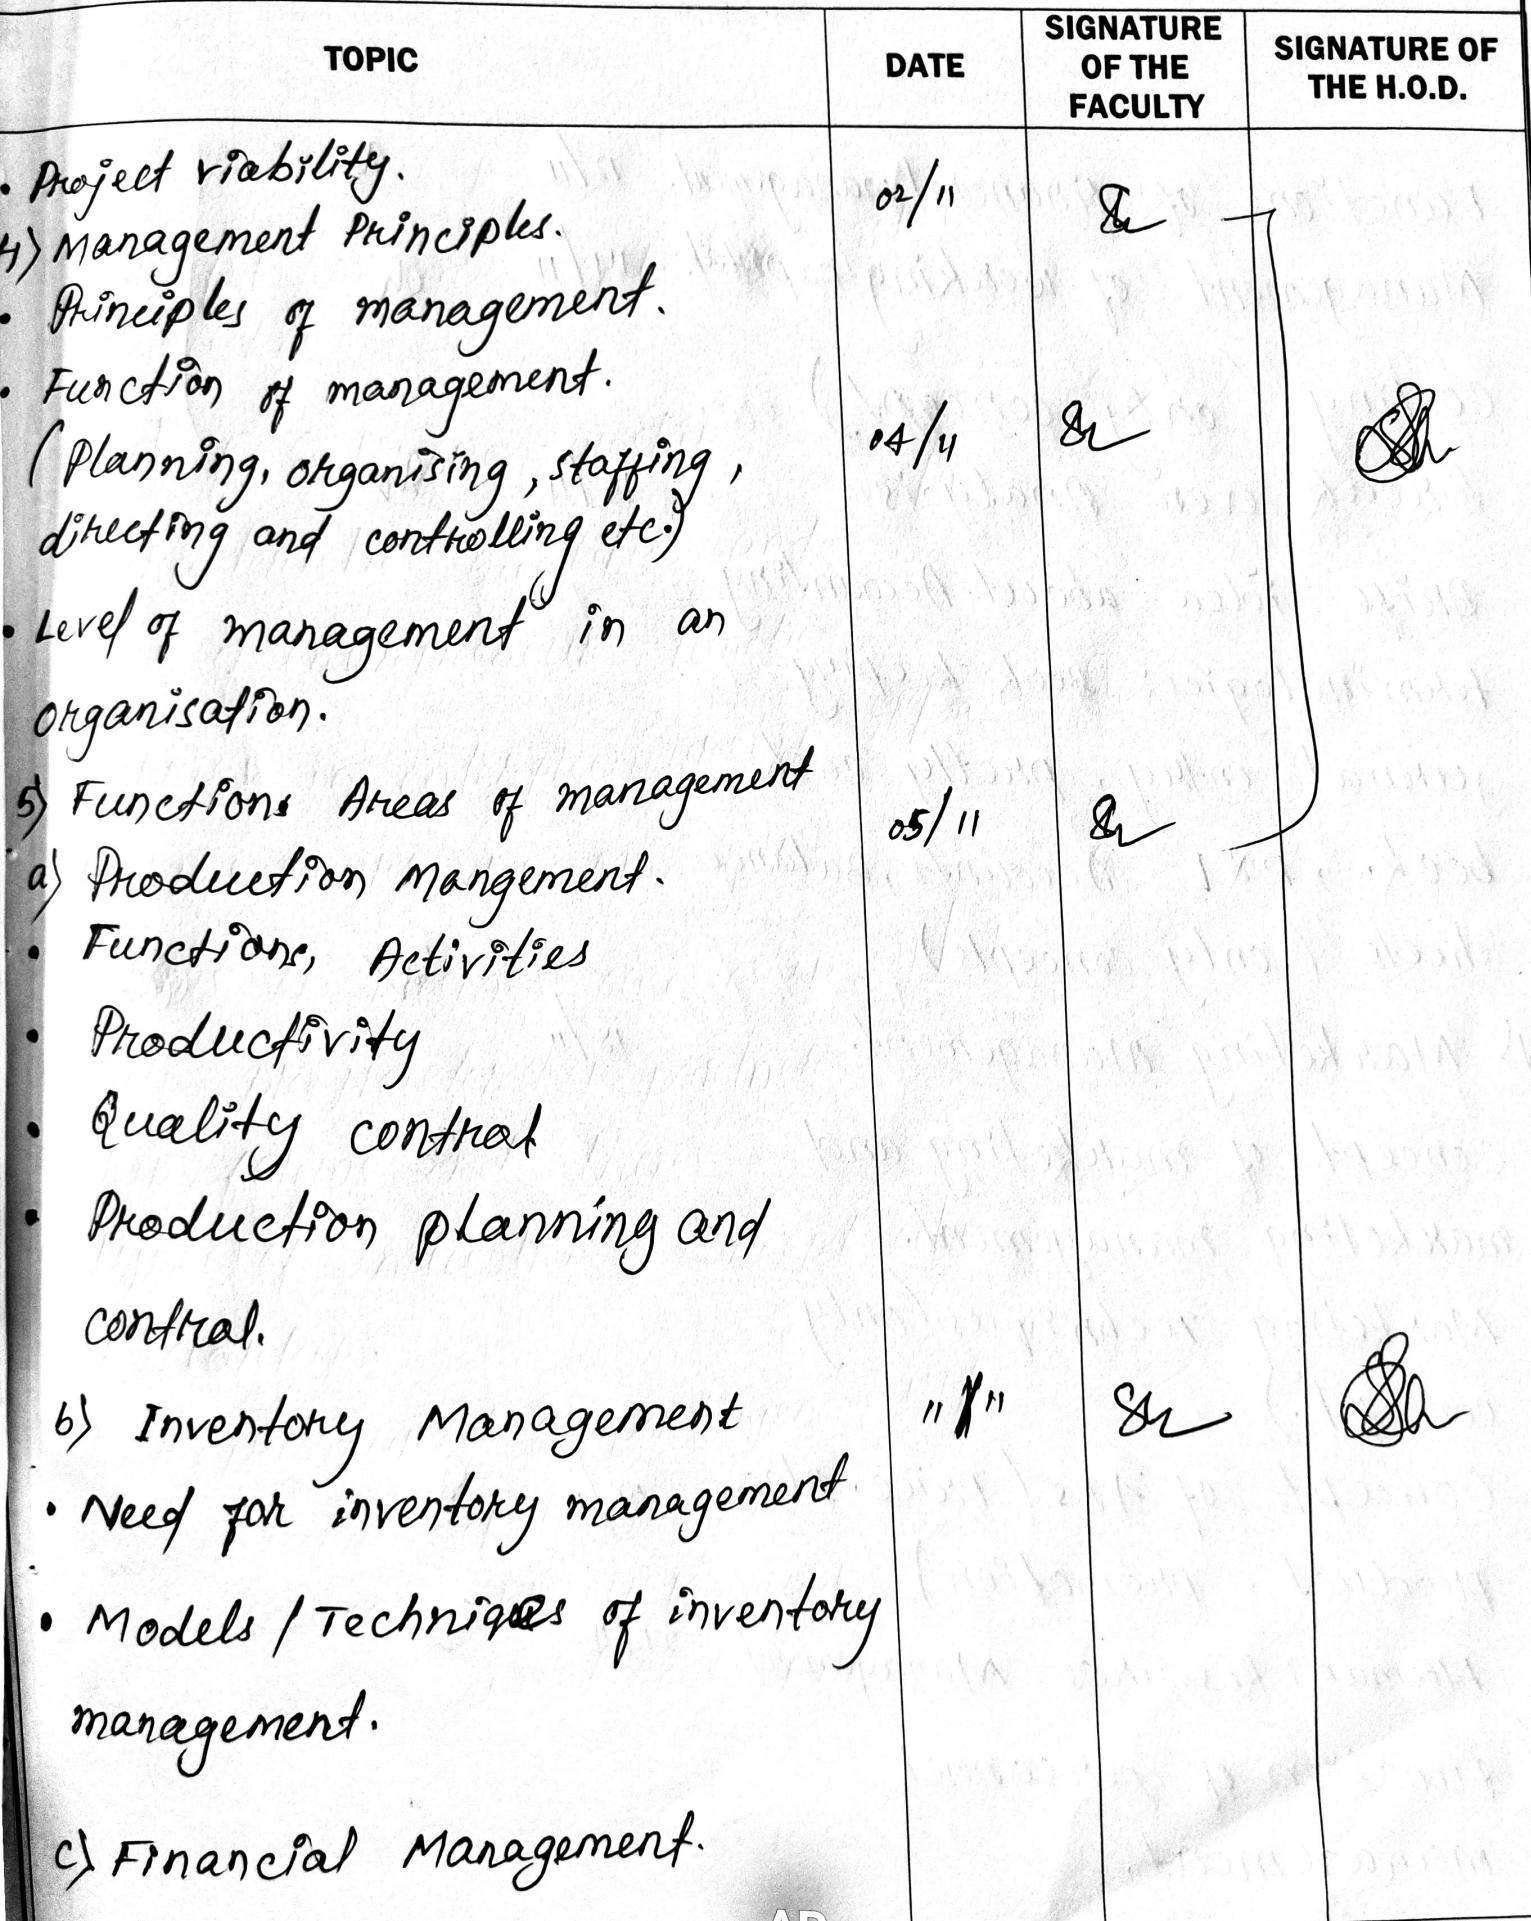 TOPIC
DATE
SIGNATURE
OF THE
FACULTY
SIGNATURE OF
THE H.O.D.
• Project viability. 02/11
4) Management Principles.
• Principles of management.
• Function of management.
(Planning, organising, staffing, 04/11
directing and controlling etc.)
• Level of management in an
organisation.
5) Functions Areas of management 05/11
a) Production Mangement.
• Functions, Activities
• Productivity
• Quality control
• Production planning and
control.
b) Inventory Management "/"
• Need for inventory management
• Models / Techniques of inventory
management.
c) Financial Management.